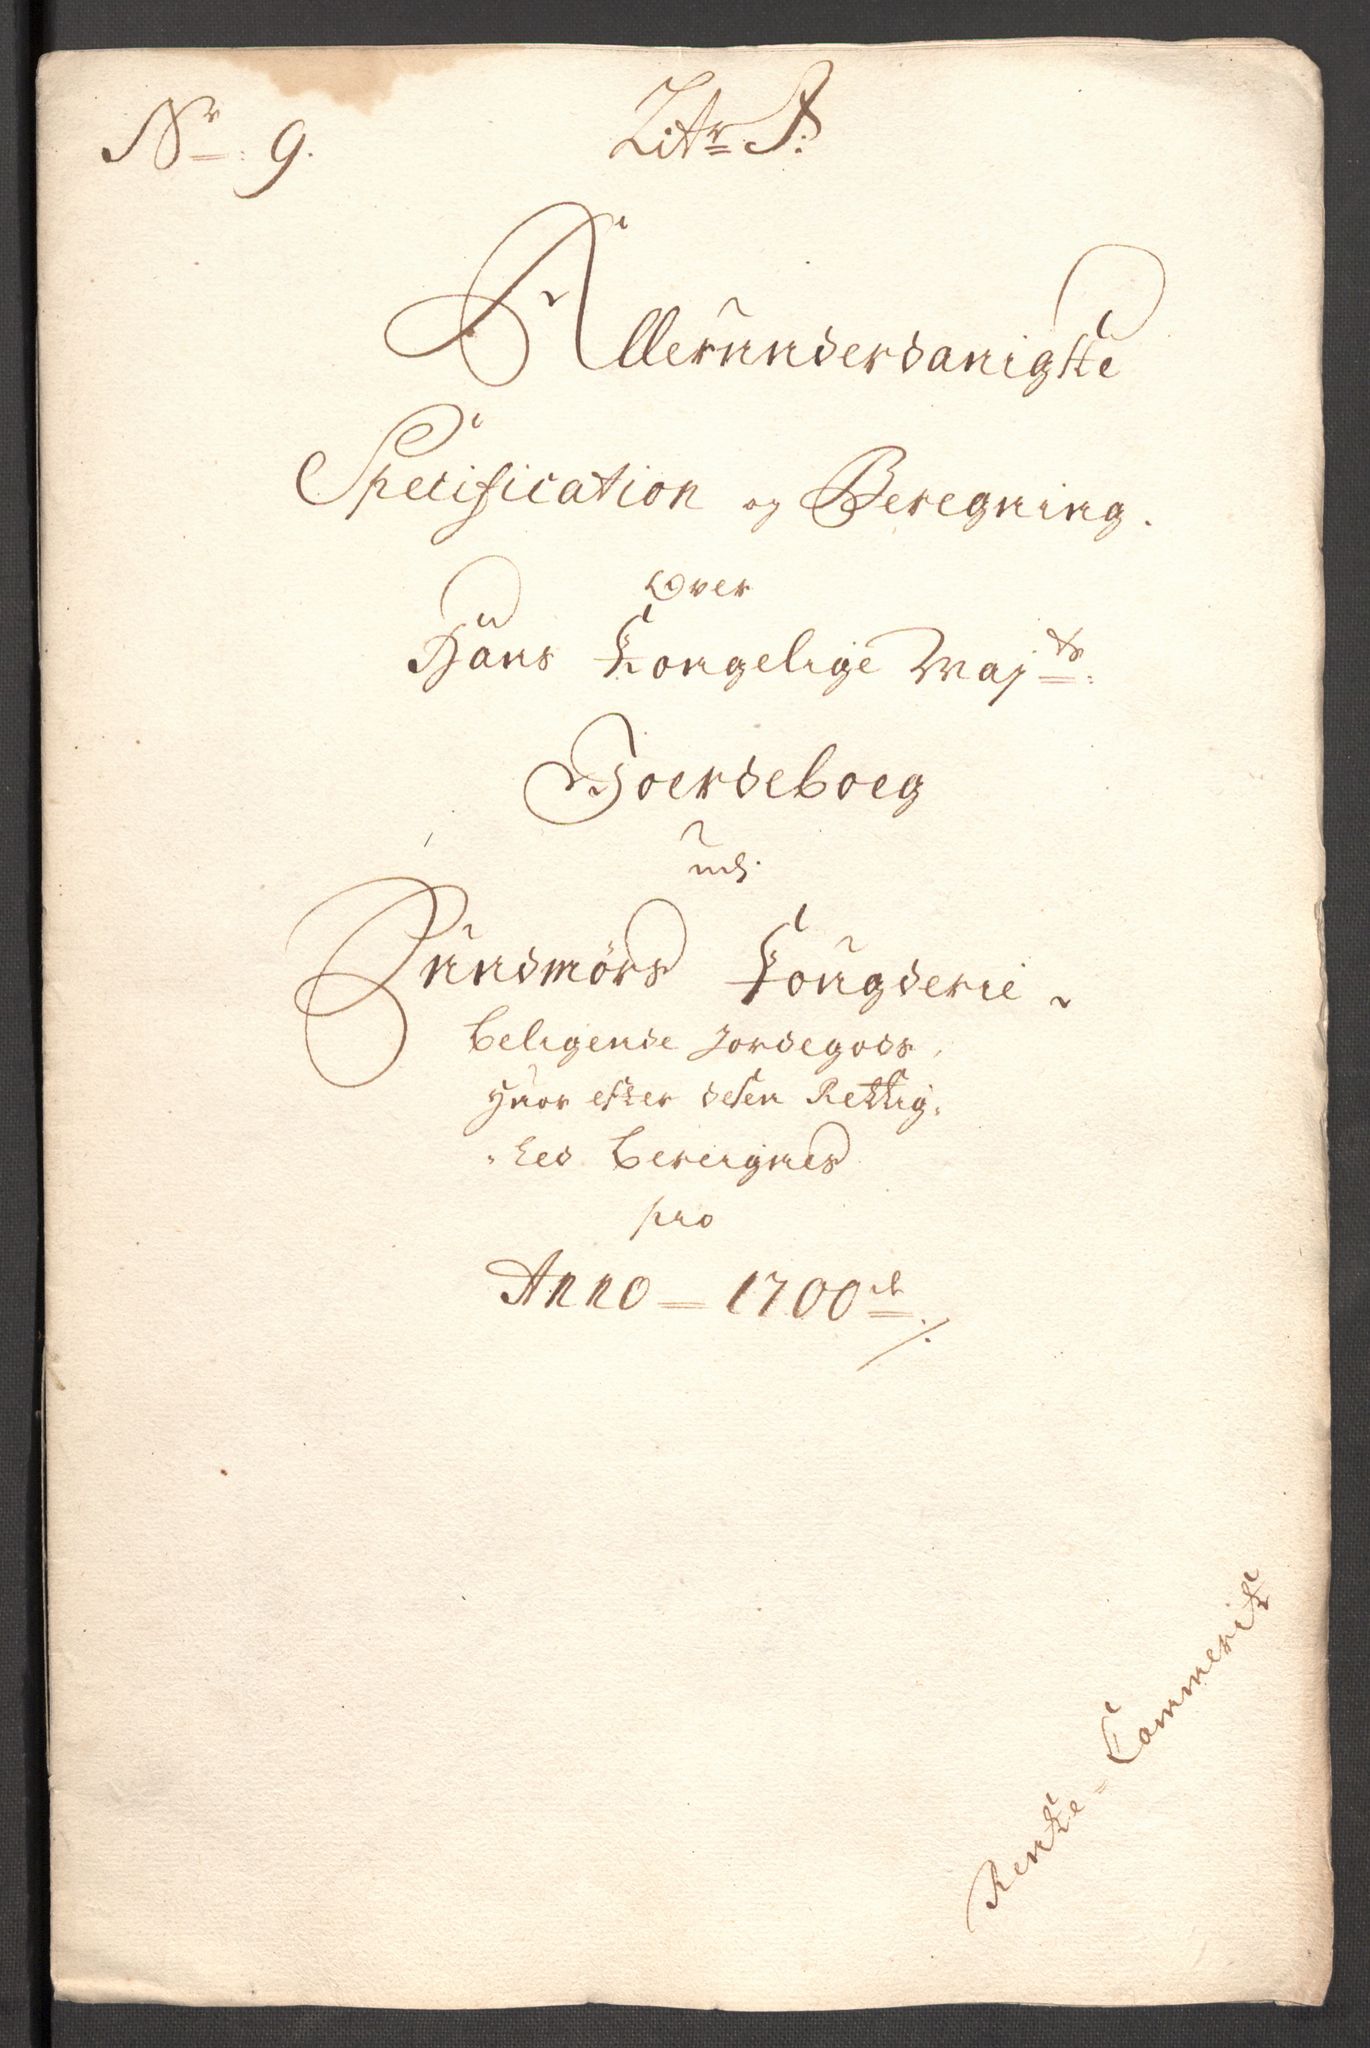 Nr: 9.
Litr:
Allerunderdanigste
Specification og Beregning.
Over
Hans Kongelige Mayts:
Joerdeboeg
udj
Sundmørs Fougderie,
beligende Jordegods,
huor efter desen Rettig,
,hed bereignes
pro
Anno 1700
Rente-Cammerit